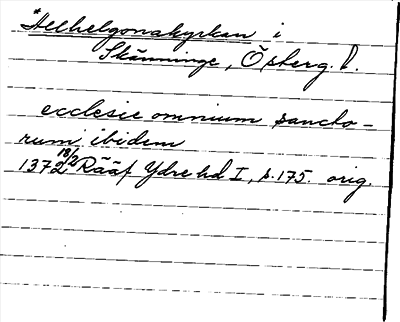 "Helhelgonakyrkan i
Skänninge, Östberg. l.
ecclesie omnium sancto-
rum ibidem
1372 18/2 Rääf Ydre hd I, s. 175. orig.